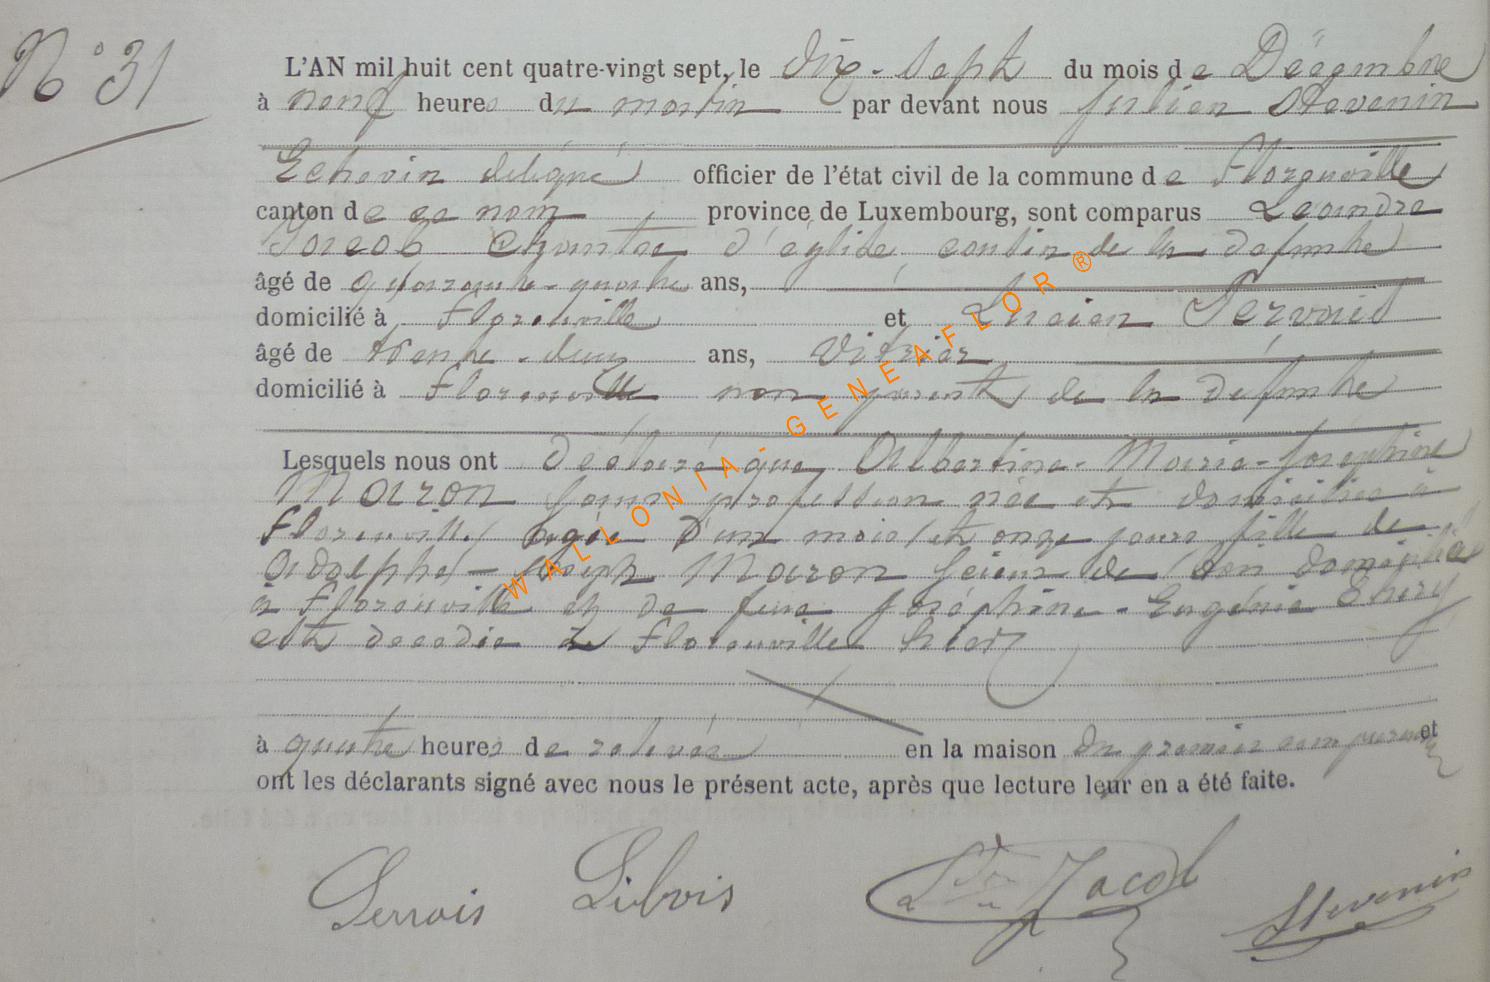 N° 31
L'AN mil huit cent quatre-vingt sept, le dix-sept du mois de Décembre
à neuf heures du matin par devant nous Julien Stevenin
Echevin délégué officier de l'état civil de la commune de Florenville
canton de ce nom province de Luxembourg, sont comparus Léandre
Jacob Chantre d'église, cousin de la défunte
âgé de quarante-quatre ans,
domicilié à Florenville et Lucien Servais
âgé de trente-deux ans, Vitrier
domicilié à Florenville non parent de la défunte
Lesquels nous ont déclaré que Albertine-Marie-Joséphine
Maron sans profession née et domiciliée à
Florenville, âgée d'un mois et onze jours fille de
Adolphe-Joseph Maron Scieur de domicilié
à Florenville et de feue Joséphine-Eugénie Thiry
est décédée à Florenville hier
à quatre heures de relevée en la maison du premier comparant et
ont les déclarants signé avec nous le présent acte, après que lecture leur en a été faite.
Servais Libois Jacob Stevenin
WALLONIA-GENEAFLOR ®